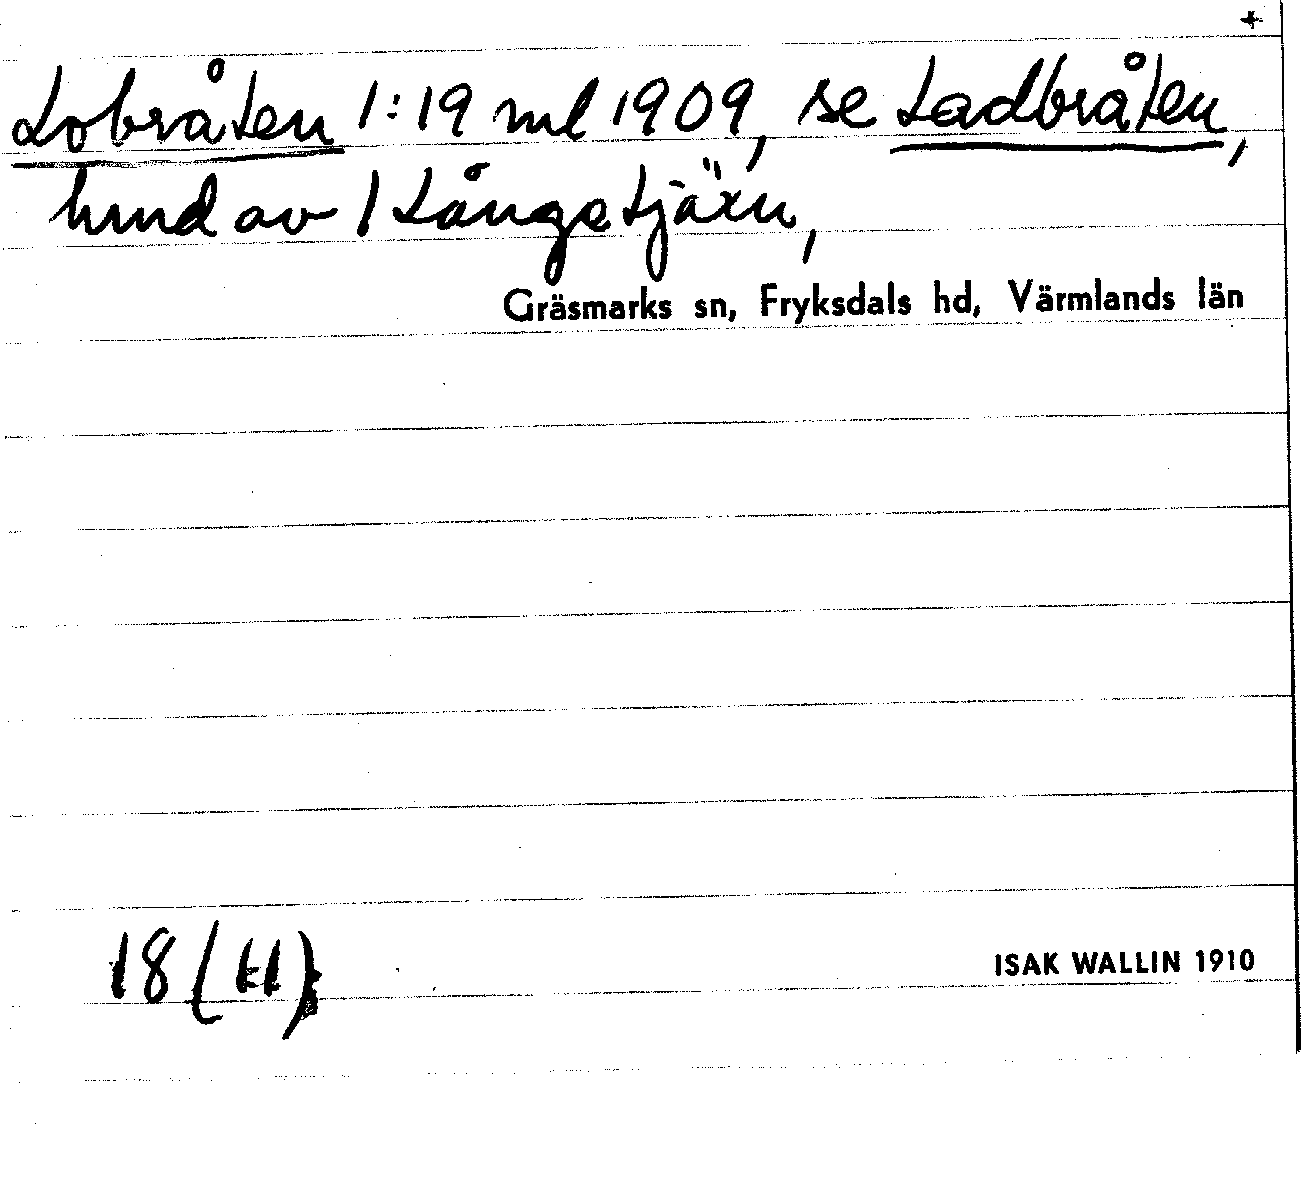 +
Lobråten 1:19 ml 1909, se Ladbråten,
hmd av 1 Långetjärn,
Gräsmarks sn, Fryksdals hd, Värmlands län
18 (H)
ISAK WALLIN 1910